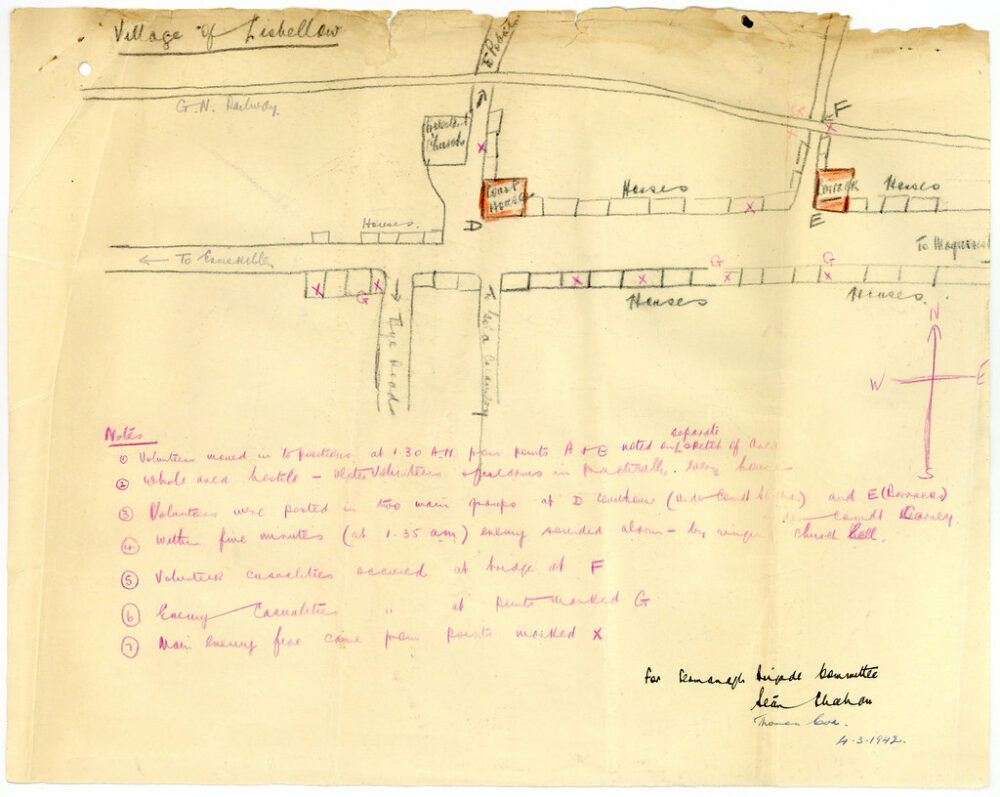 Village of Lisbellow
G.N. Railway.
F
Protestant Church
Court House
Houses
Barrack
Houses
D
E
Houses.
To Maguires
← To
G
G
G
Houses
Houses.
Tye Road
To
N
W
E
S
Notes
① Volunteers moved in to positions at 1.30 AM from points A + B noted on separate sketch of area
② Whole area hostile – Ulster Volunteers + firearms in practically every house
③ Volunteers were posted in two main groups at D Courthouse (under Comdt) and E (Barracks)
Comdt Carney.
④ Within five minutes (at 1.35 a.m) enemy sounded alarm – by ringing church bell.
⑤ Volunteer casualities occured at bridge at F
⑥ Enemy Casualities " at points marked G
⑦ Main enemy fire came from points marked X
For Fermanagh Brigade Committee
Seán
Thomas Cox.
4-3-1942.